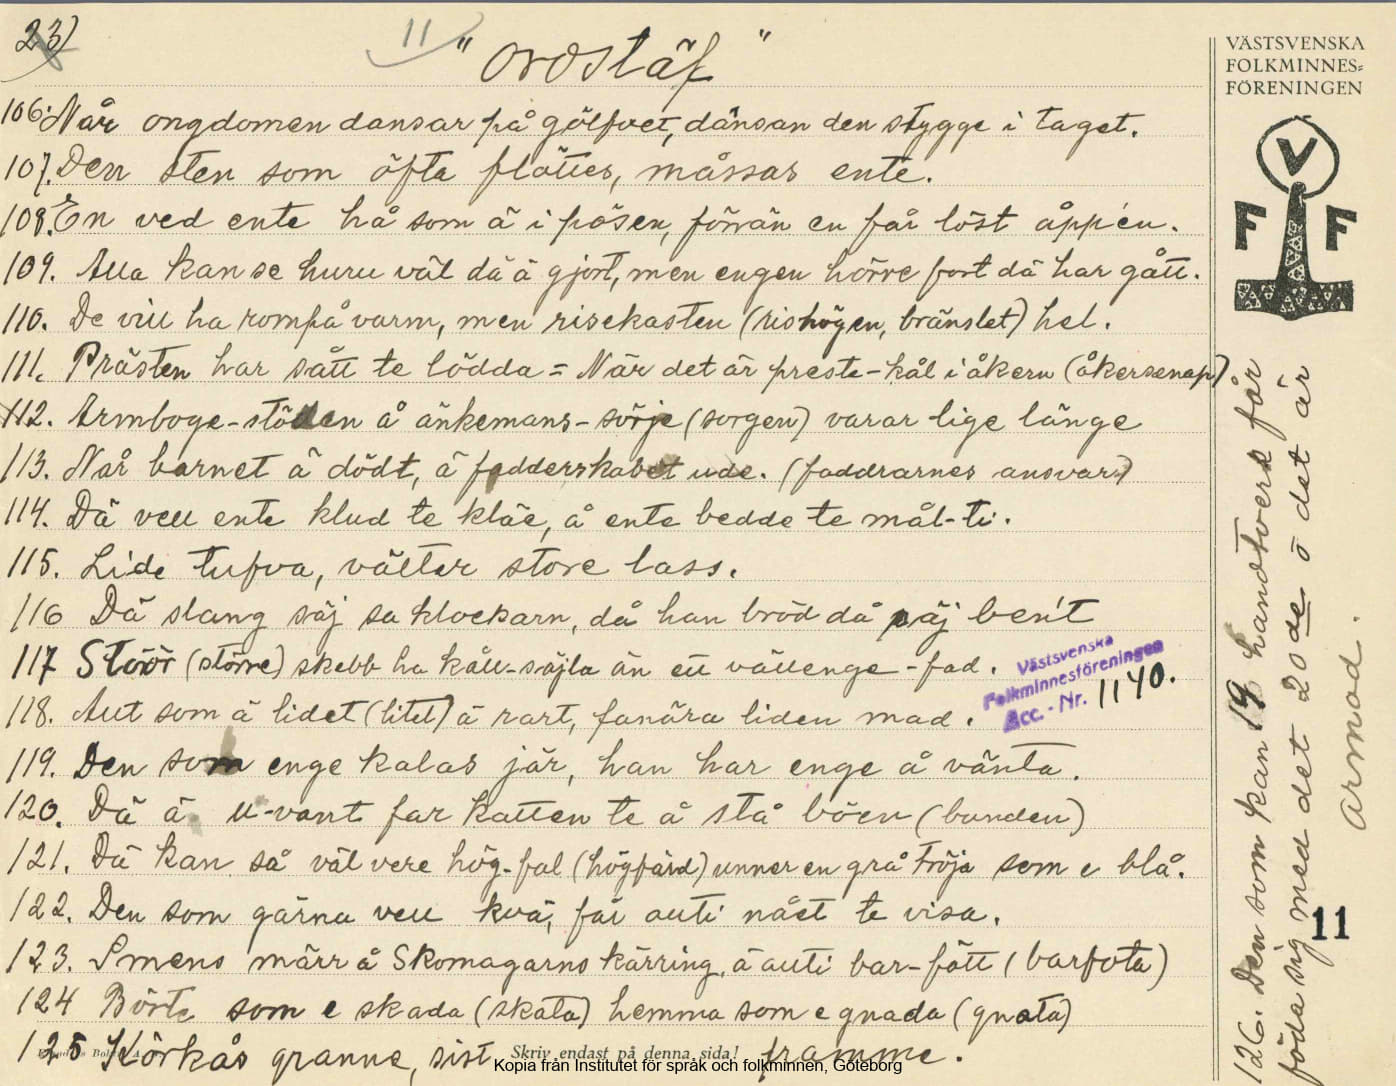 23)
11
"Ordstäf"
VÄSTSVENSKA
FOLKMINNES=
FÖRENINGEN
V
F F
106. Når ongdomen dansar på gölfvet, dänsan den stygge i taget.
107. Den sten som öfta flöttes, måssas ente.
108. En ved ente hå som ä i påsen, förrän en får löst åpp'en.
109. Alla kan se huru väl dä ä gjort, men engen hörre fort dä har gått.
110. De vill ha rompå varm, men risekasten (rishögen, bränslet) hel.
111. Prästen har sått te lödda = När det är preste-kål i åkern (åkersenap)
112. Armboge-stöden å änkemans-sörje (sorgen) varar lige länge
113. Når barnet ä dödt, ä fadderskabet ude. (faddrarnes ansvar)
114. Dä vell ente klud te kläe, å ente bedde te mål-ti.
115. Lide tufva, välter store lass.
116 Dä slang säj sa klockarn, då han bröd då säj ben't
117 Störr (större) skebb ha kåll-säjla än ett vällenge-fad.
118. Alt som ä lidet (litet) ä rart, fanära liden mad.
Västsvenska
Folkminnesföreningen
Acc. - Nr. 1140.
119. Den som enge kalas jär, han har enge å vänta.
120. Dä ä u-vant far katten te å stå böen (bunden)
121. Dä kan så väl vere hög-fal (högfärd) unner en grå tröja som e blå.
122. Den som gärna vell kvä, får auti nået te visa.
123. Smens märr å Skomagarns kärring, ä auti bar-fött (barfota)
124 Börte som e skada (skata) hemma som e gnada (gnata)
125 Körkås granne, sist framme.
Skriv endast på denna sida!
126. Den som kan 19 handtverk får
föda sig med det 20de ō det är
armod.
11
Kopia från Institutet för språk och folkminnen, Göteborg